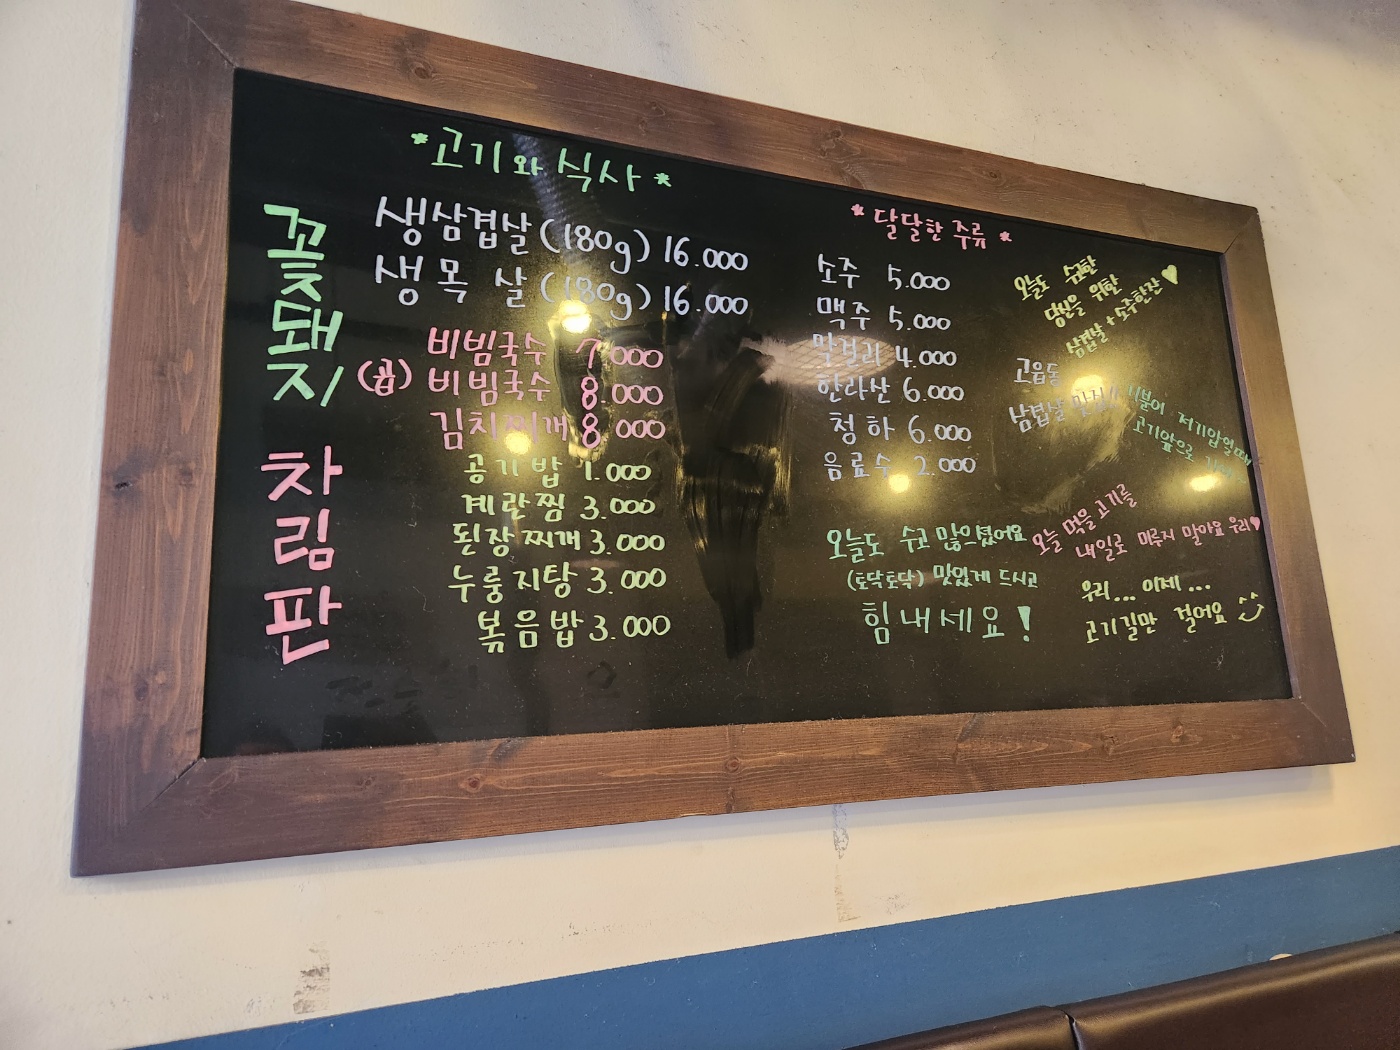 꽃돼지 차림판
*고기와 식사*
생삼겹살 (180g) 16.000
생목살 (180g) 16.000
비빔국수 7.000
(곱) 비빔국수 8.000
김치찌개 8.000
공기밥 1.000
계란찜 3.000
된장찌개 3.000
누룽지탕 3.000
볶음밥 3.000
*달달한 주류*
소주 5.000
맥주 5.000
막걸리 4.000
한라산 6.000
청하 6.000
음료수 2.000
오늘도 수고 많으셨어요
(토닥토닥) 맛있게 드시고
힘내세요!
오늘도 수고한
당신을 위한
삼겹살+소주한잔♥
고읍동
삼겹살 맛집!!
기분이 저기압일때
고기앞으로
오늘 먹을 고기를
내일로 미루지 말아요 우리♥
우리... 이제...
고기길만 걸어요